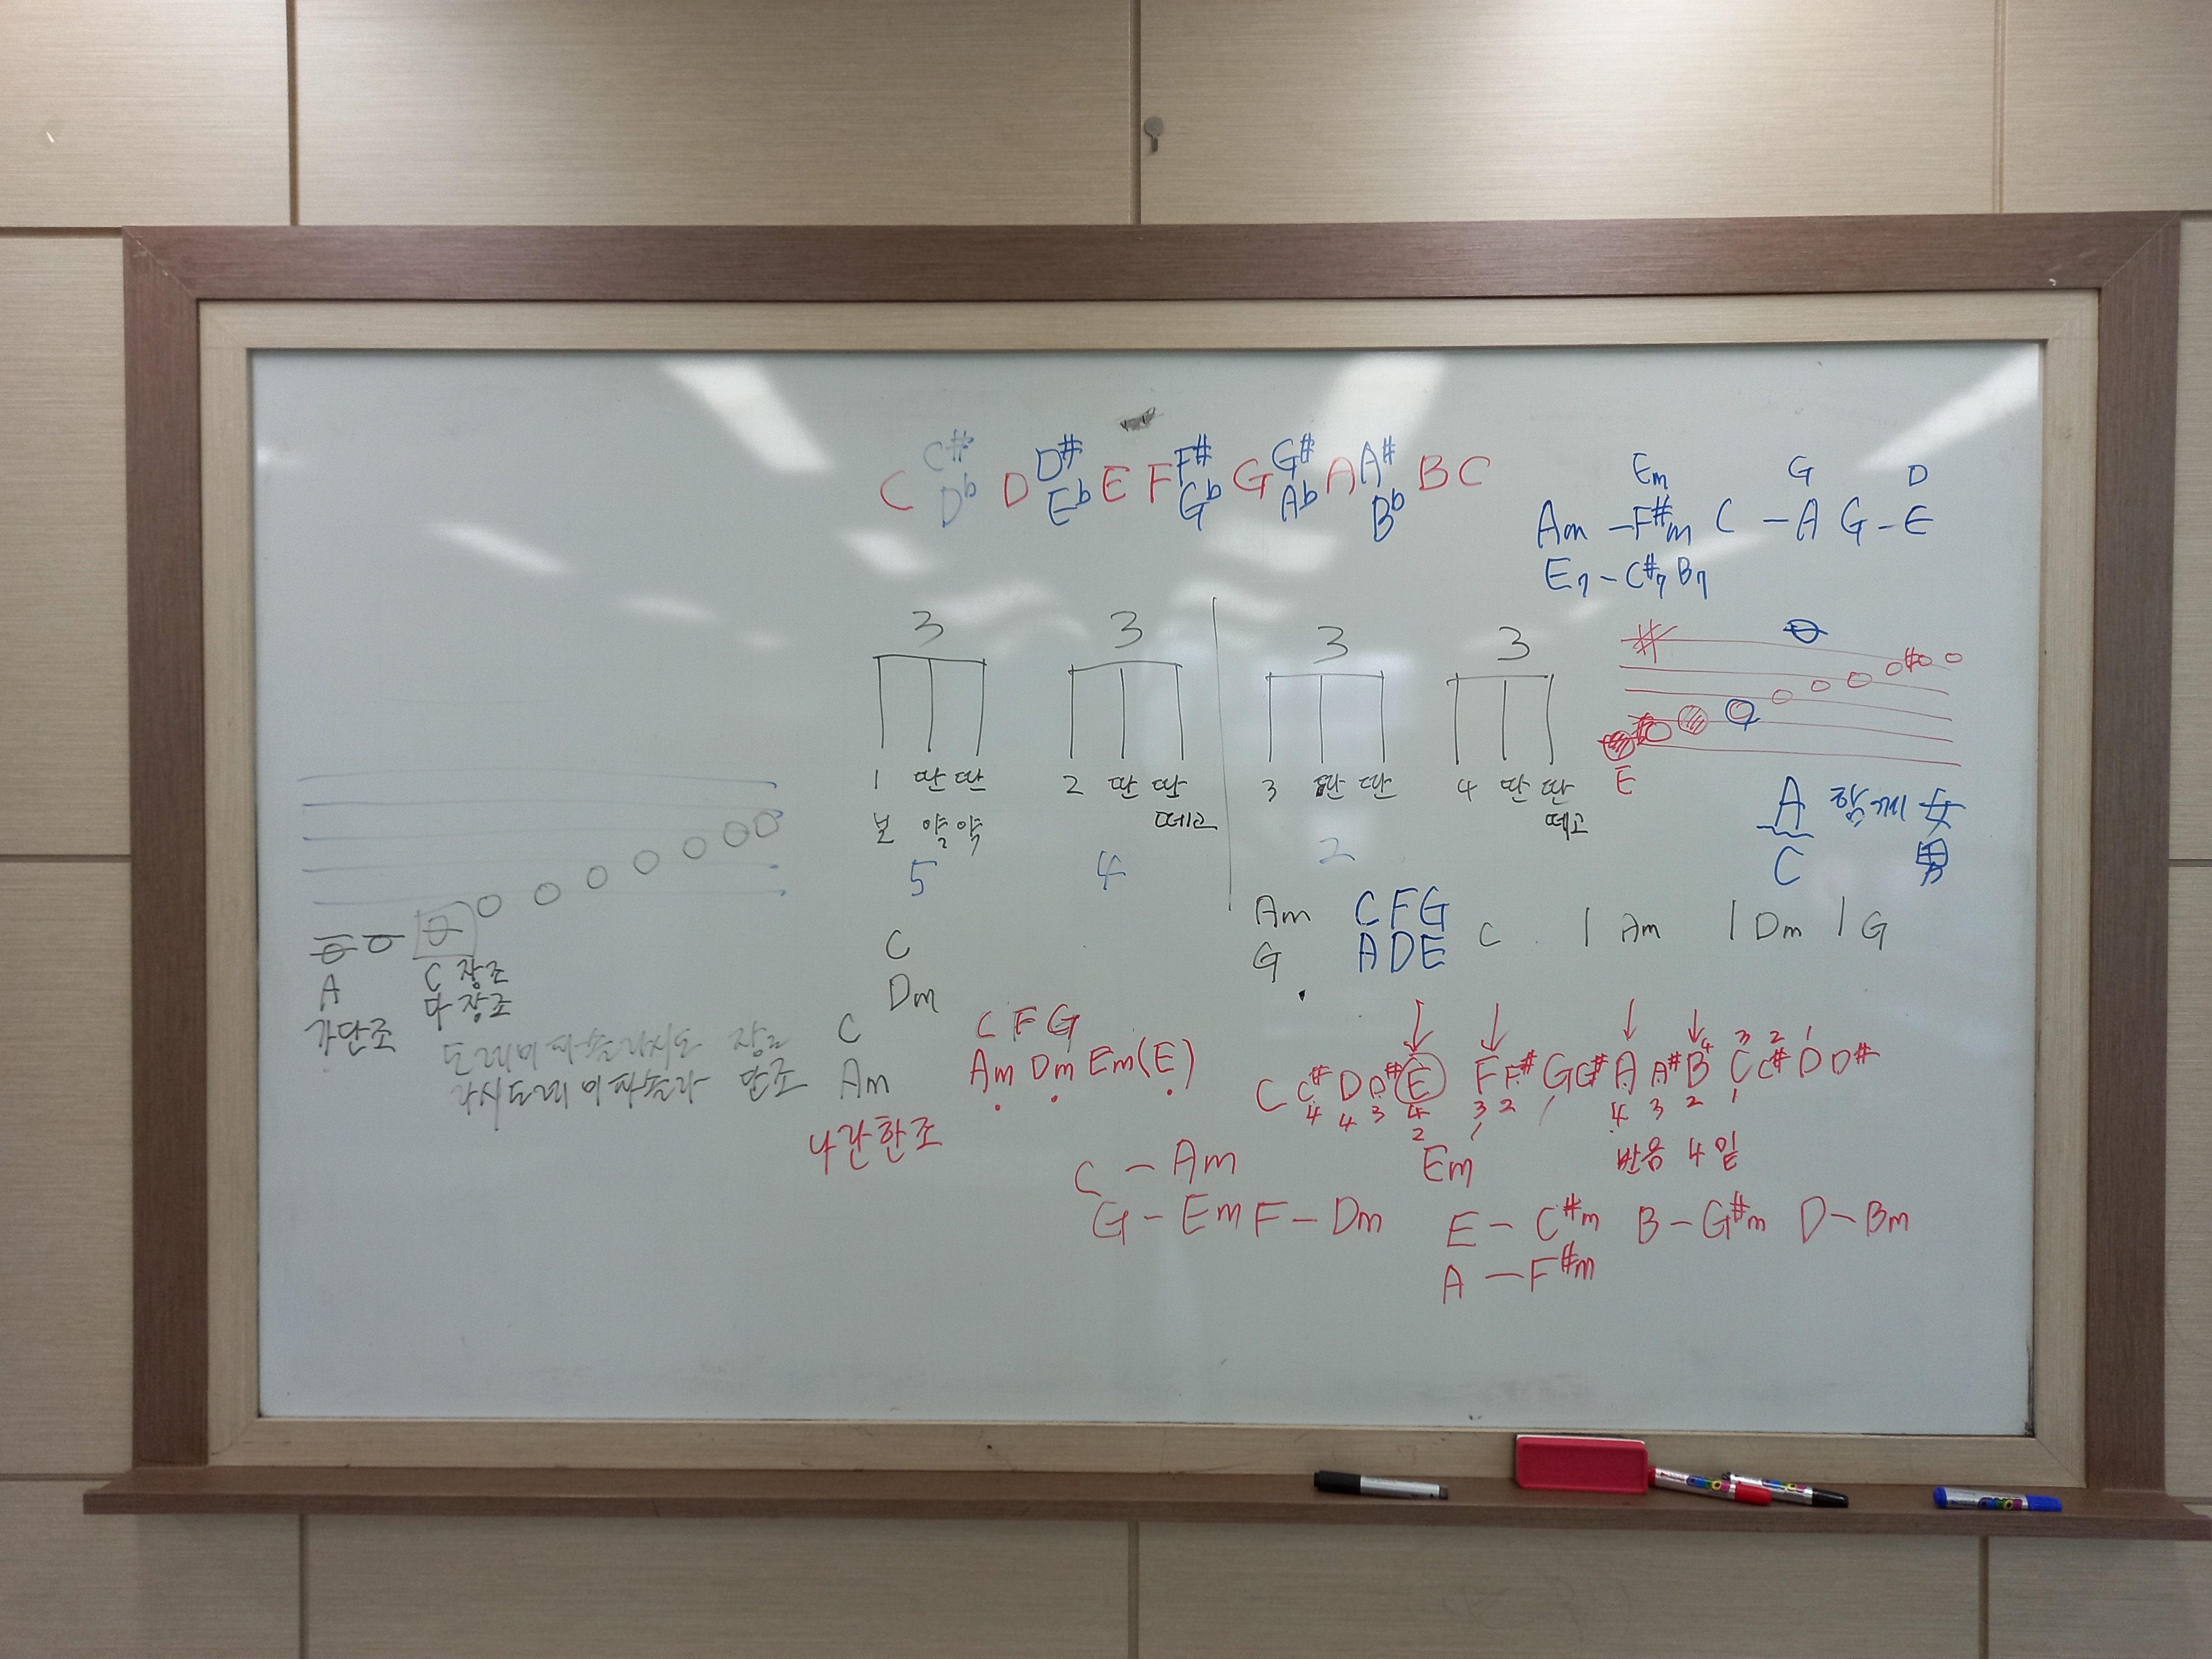 C C# Db D D# Eb E F F# Gb G G# Ab A A# Bb B C
Em G D
Am - F#m C - A G - E
E7 - C#7 B7
3 3 3 3
1 딴 딴 2 딴 딴 3 딴 딴 4 딴 딴
떼고 떼고
5 4 2
#
#
E
A 함께 女
C 男
A C 장조
가단조 다 장조
도레미파솔라시도 장조
라시도레미파솔라 단조
C
Dm
C
Am
나란한조
C F G
Am Dm Em(E)
Am C F G
G A D E
C | Am | Dm | G
4 3 2 1
C C# D D# E F F# G G# A A# B C C# D D#
4 4 3 4 3 2 1 4 3 2 1
2 1
Em 반음 4 밑
C - Am
G - Em F - Dm
E - C#m B - G#m D - Bm
A - F#m